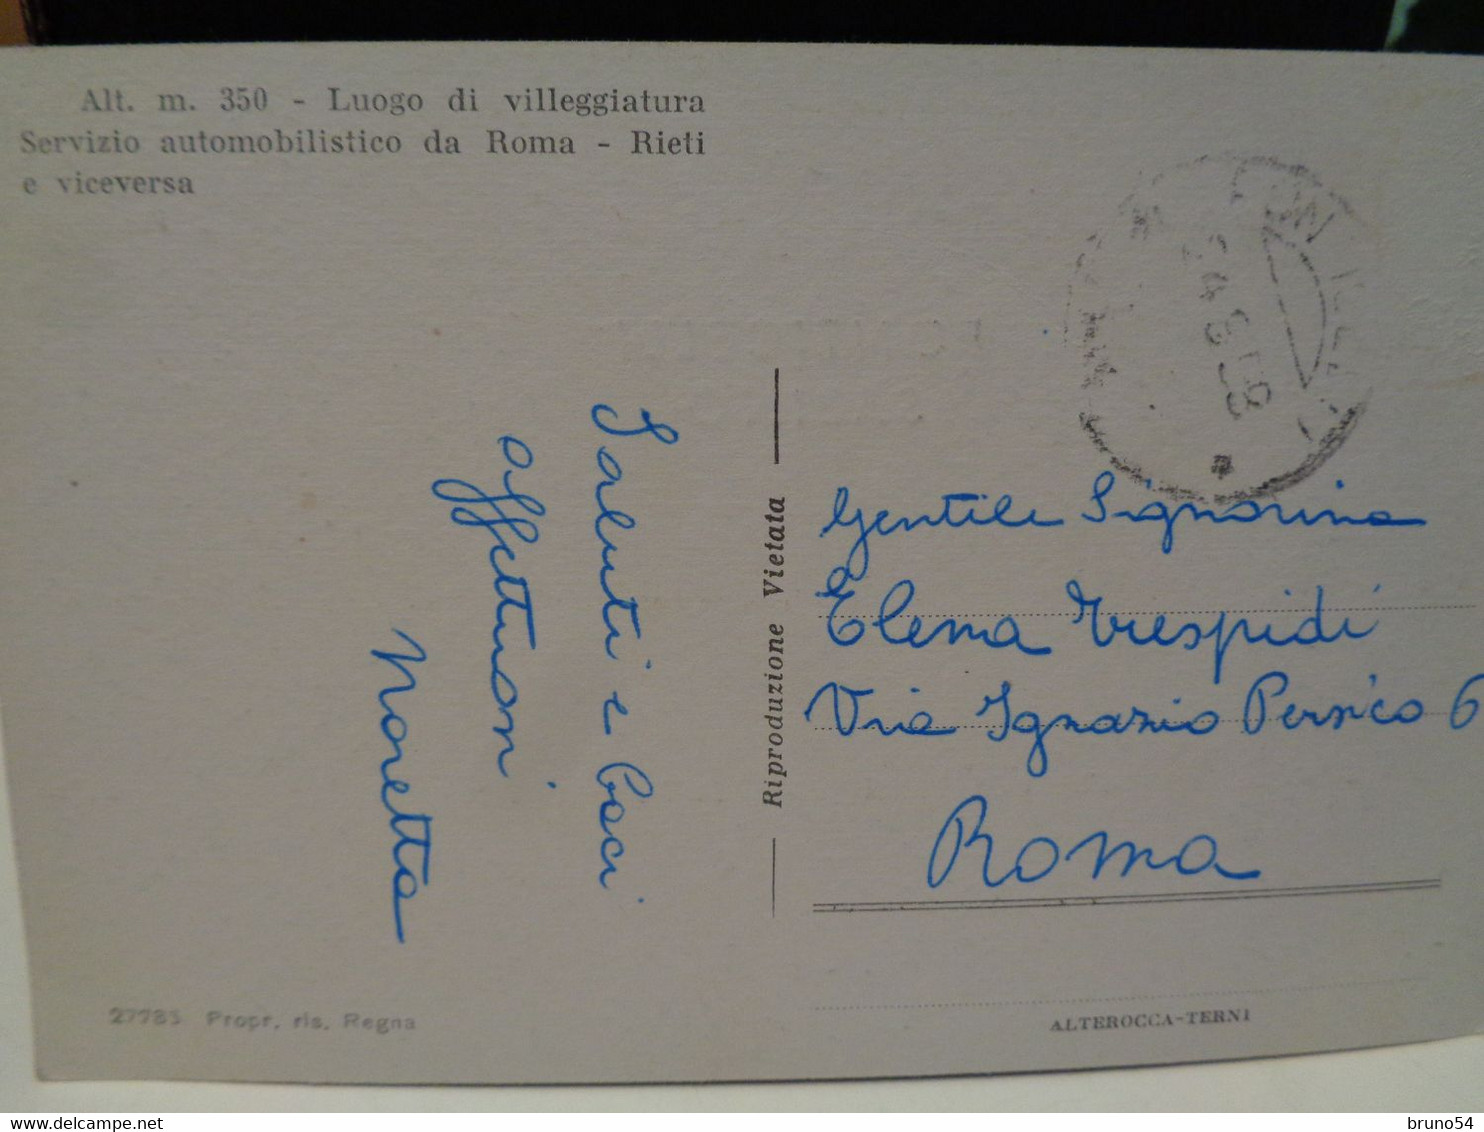 Alt. m. 350 - Luogo di villeggiatura
Servizio automobilistico da Roma - Rieti
e viceversa
Saluti e baci
affettuosi
Noretta
Riproduzione Vietata
Gentile Signorina
Elena Trespidi
Via Ignazio Persico 6
Roma
27783 Propr. ris. Regna
ALTEROCCA-TERNI
bruno54